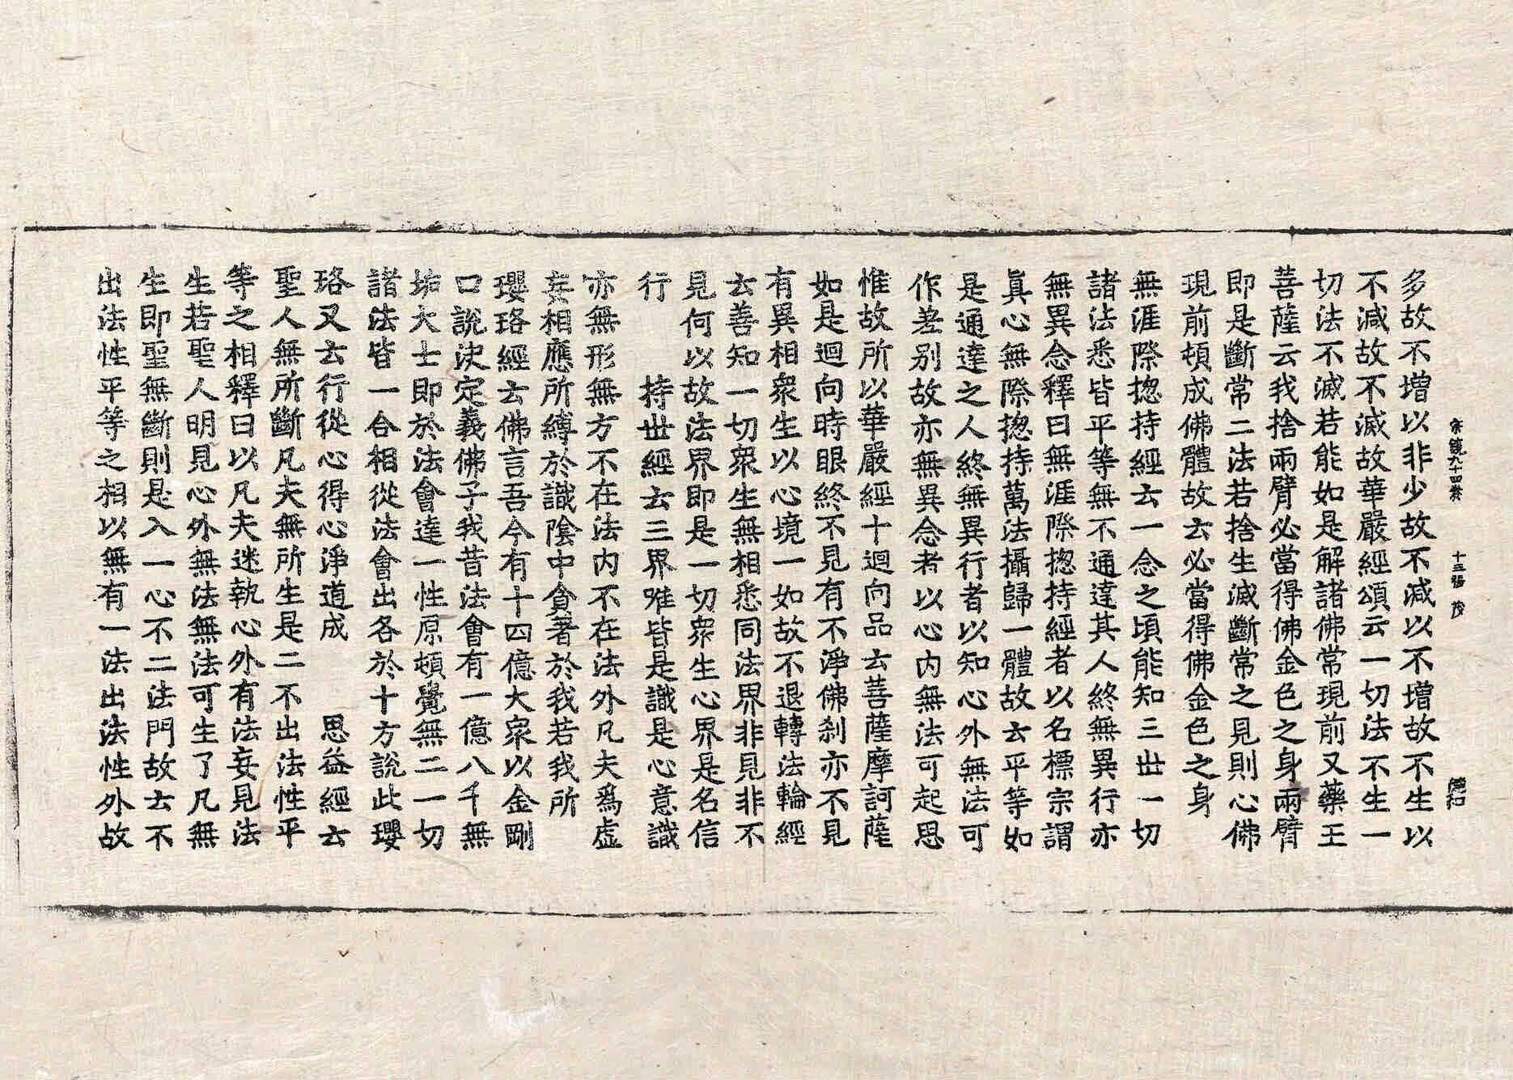 宗鏡九十四卷 十五張 茂
多故不增以非少故不減以不增故不生以
不減故不滅故華嚴經頌云一切法不生一
切法不滅若能如是解諸佛常現前又藥王
菩薩云我捨兩臂必當得佛金色之身兩臂
即是斷常二法若捨生滅斷常之見則心佛
現前頓成佛體故云必當得佛金色之身
無涯際揔持經云一念之頃能知三世一切
諸法悉皆平等無不通達其人終無異行亦
無異念釋曰無涯際揔持經者以名標宗謂
眞心無際揔持萬法攝歸一體故云平等如
是通達之人終無異行者以知心外無法可
作差別故亦無異念者以心內無法可起思
惟故所以華嚴經十迴向品云菩薩摩訶薩
如是迴向時眼終不見有不淨佛刹亦不見
有異相衆生以心境一如故不退轉法輪經
云善知一切衆生無相悉同法界非見非不
見何以故法界即是一切衆生心界是名信
行 持世經云三界唯皆是識是心意識
亦無形無方不在法內不在法外凡夫爲虛
妄相應所縛於識陰中貪著於我若我所
瓔珞經云佛言吾今有十四億大衆以金剛
口說決定義佛子我昔法會有一億八千無
垢大士即於法會達一性原頓覺無二一切
諸法皆一合相從法會出各於十方說此瓔
珞又云行從心得心淨道成 思益經云
聖人無所斷凡夫無所生是二不出法性平
等之相釋曰以凡夫迷執心外有法妄見法
生若聖人明見心外無法無法可生了凡無
生即聖無斷則是入一心不二法門故云不
出法性平等之相以無有一法出法性外故